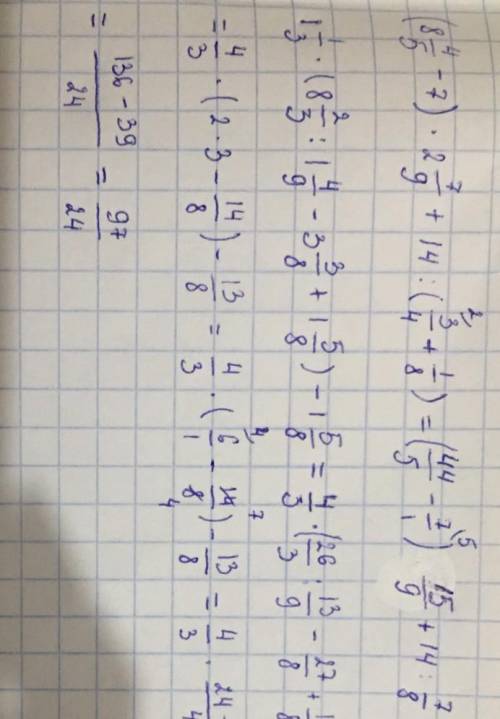 (8 4/5 - 7) · 2 7/9 + 14 : (3/4 + 1/8) = (44/5 - 7/1) 15/9 + 14 : 7/8
1 1/3 · (8 2/3 : 1 4/9 - 3 3/8 + 1 5/8) - 1 5/8 = 4/3 · (26/3 : 13/9 - 27/8 +
= 4/3 · (2·3 - 14/8) - 13/8 = 4/3 · (6/1 - 14/8) - 13/8 = 4/3 ·
= 136 - 39/24 = 97/24